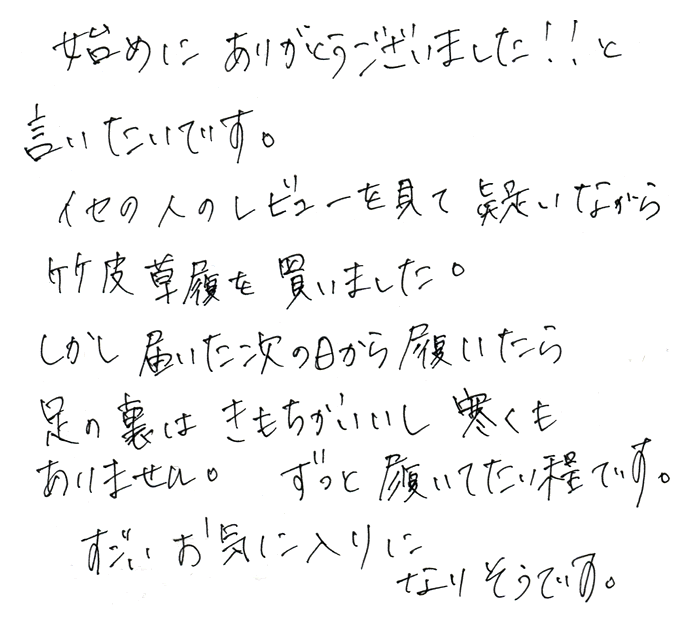 始めに ありがとうございました!!と
言いたいです。
イセの人のレビューを見て 疑いながら
竹皮草履を 買いました。
しかし 届いた次の日から 履いたら
足の裏は きもちがいいし 寒くも
ありません。 ずっと 履いてたい程です。
すごい お気に入りに
なりそうです。